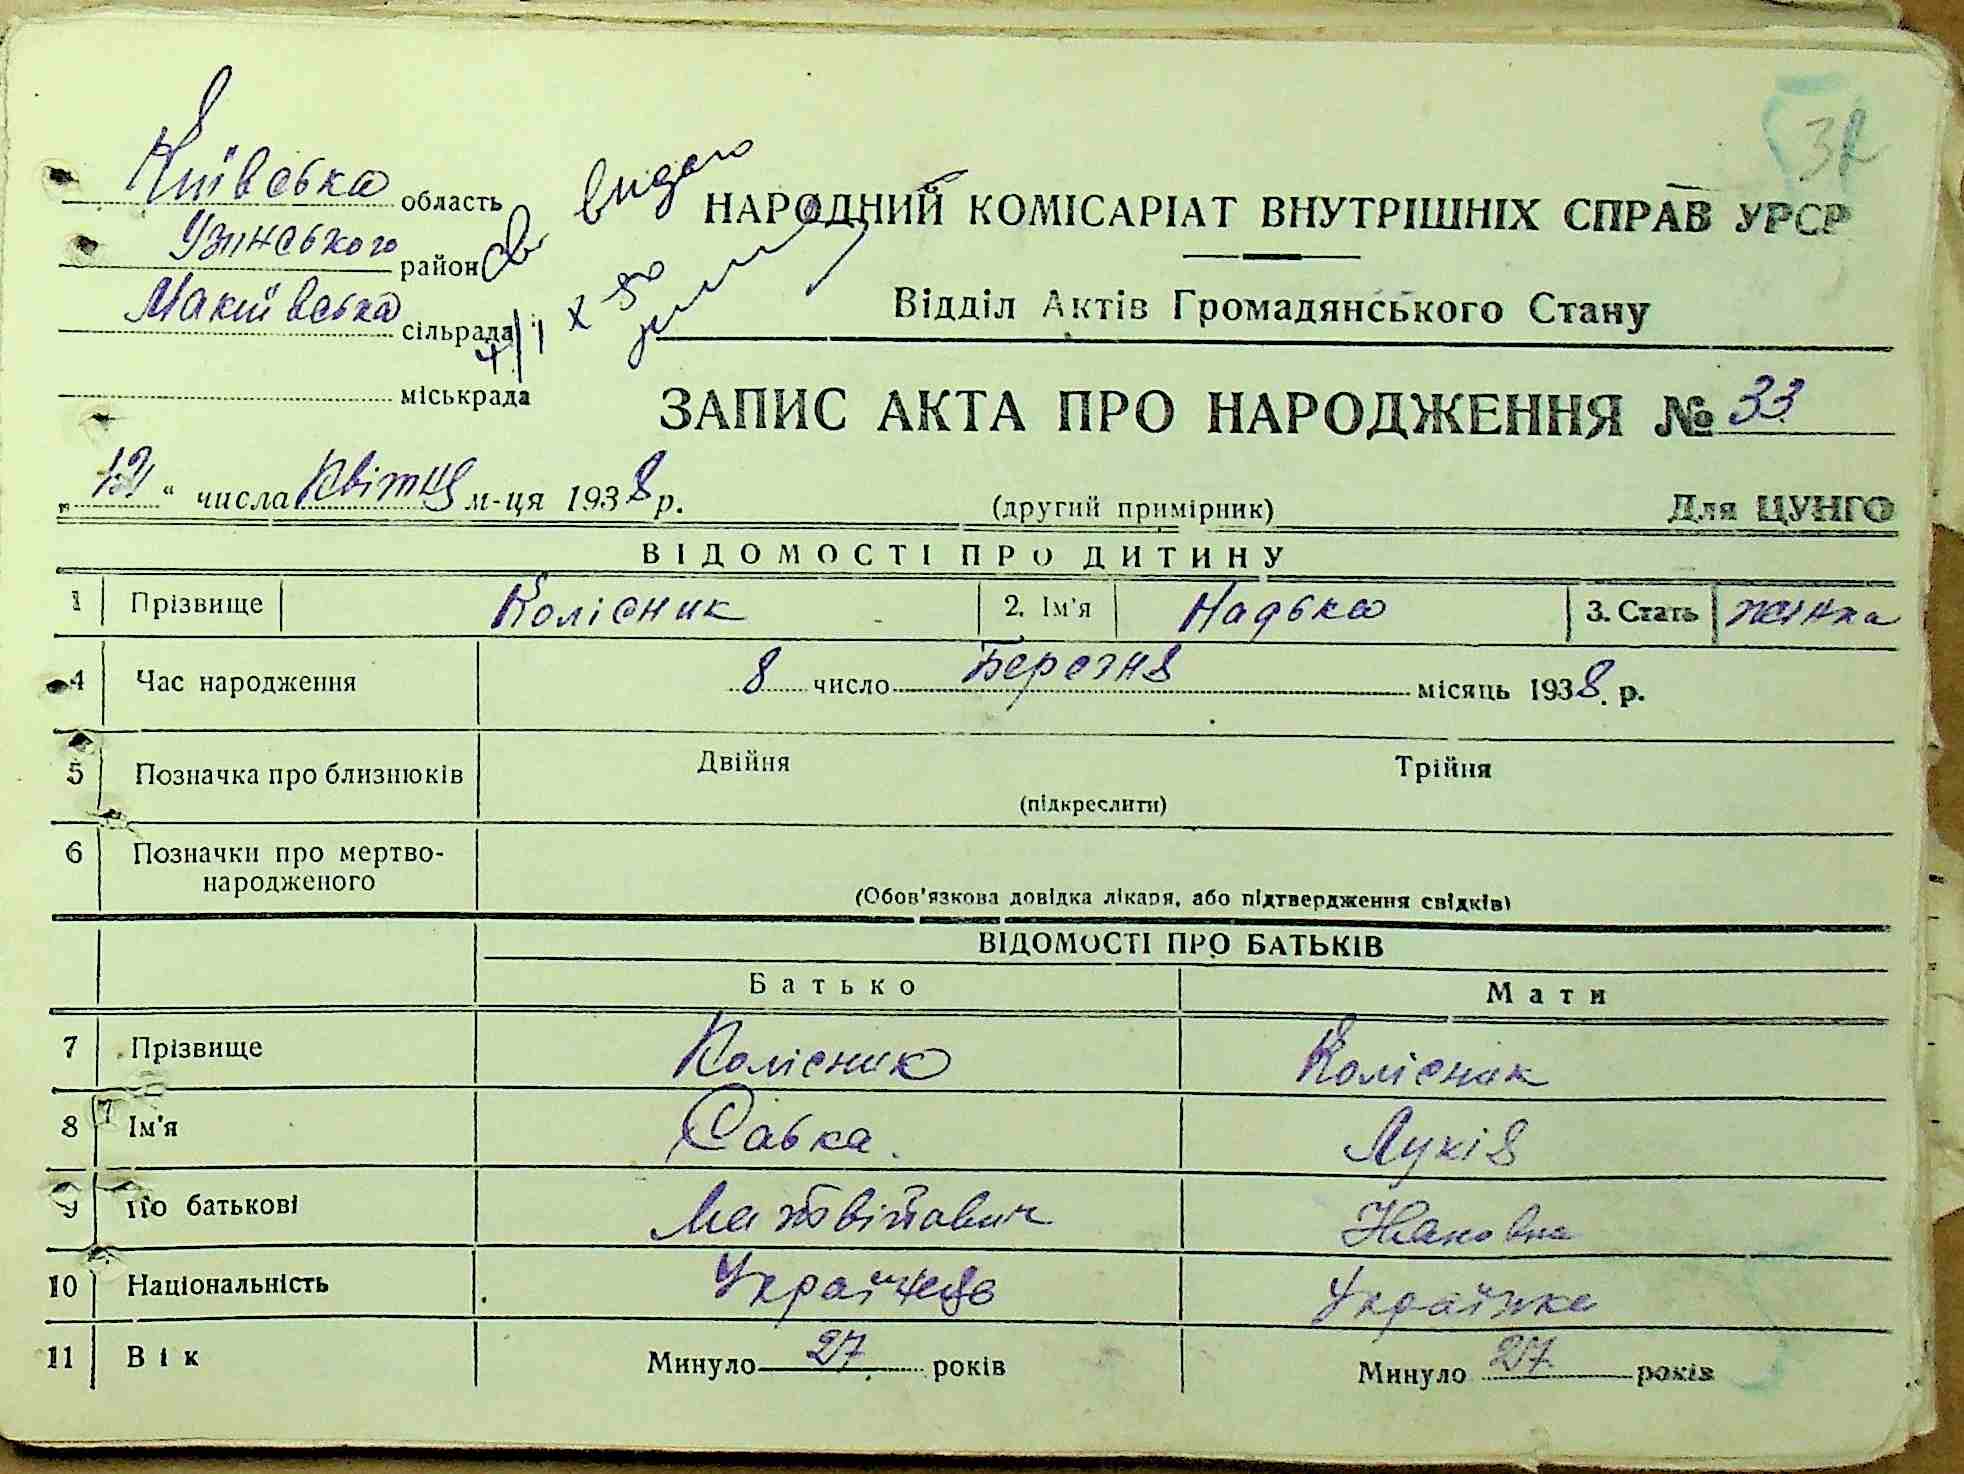 32
Київська область
Узинського район
Макиївська сільрада
міськрада
Св видано
4/IX 50
НАРОДНИЙ КОМІСАРІАТ ВНУТРІШНІХ СПРАВ УРСР
Відділ Актів Громадянського Стану
ЗАПИС АКТА ПРО НАРОДЖЕННЯ № 33
"12" числа Квітця м-ця 1938 р. (другий примірник) Для ЦУНГО
ВІДОМОСТІ ПРО ДИТИНУ
1 Прізвище Колісник 2. Ім'я Надька 3. Стать жінка
4 Час народження 8 число Березня місяць 1938. р.
5 Позначка про близнюків Двійня Трійня
(підкреслити)
6 Позначки про мертво-
народженого
(Обов'язкова довідка лікаря, або підтвердження свідків)
ВІДОМОСТІ ПРО БАТЬКІВ
Батько Мати
7 Прізвище Колісник Колісник
8 Ім'я Савка. Лукія
9 По батькові Матвійович
10 Національність Українець Українка
11 Вік Минуло 27 років Минуло 27 років